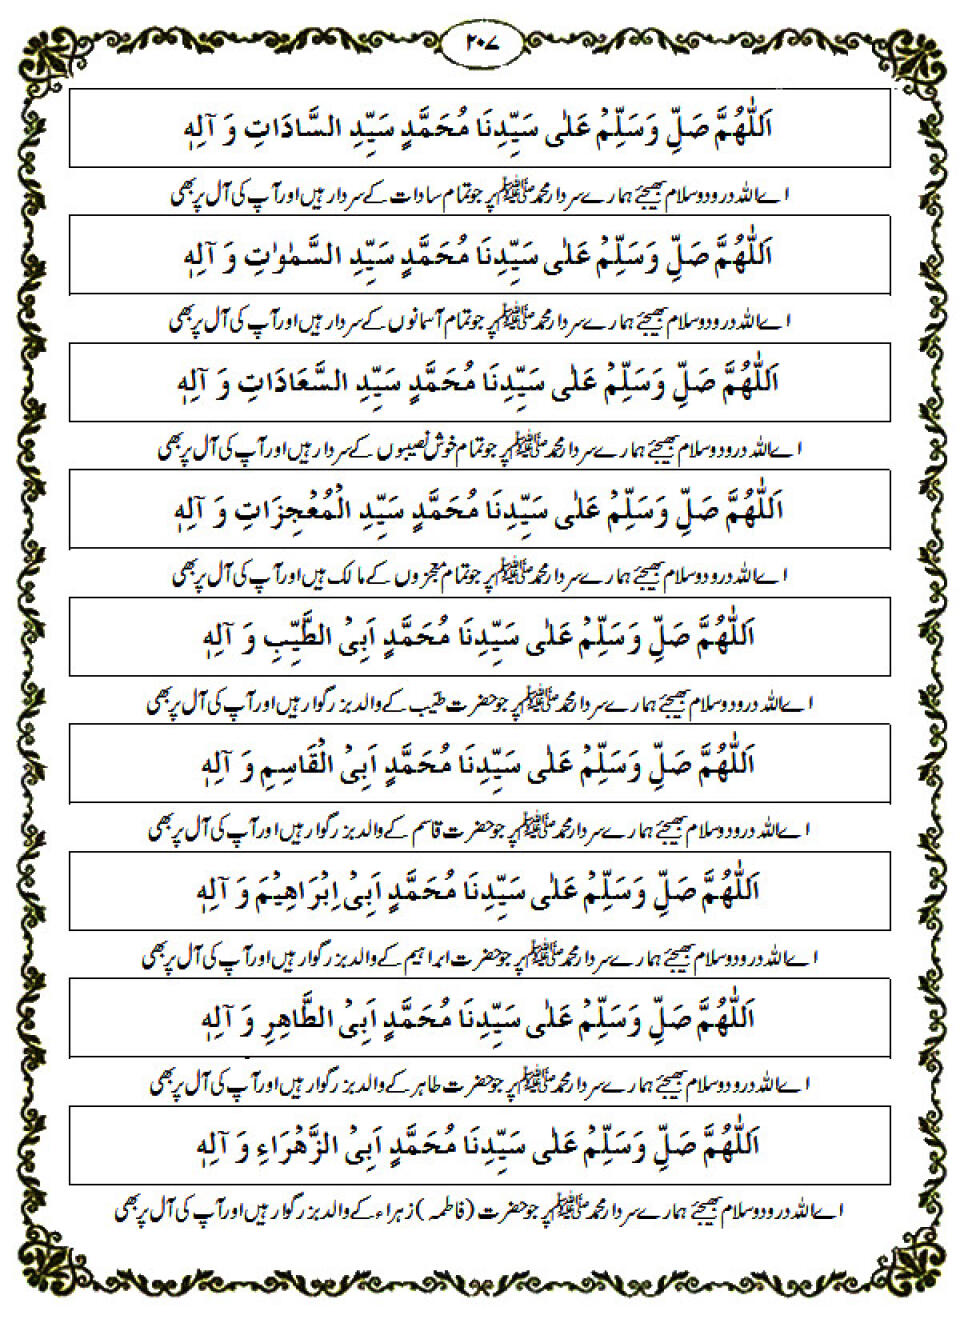 ۲۰۷
اَللّٰهُمَّ صَلِّ وَسَلِّمْ عَلٰى سَيِّدِنَا مُحَمَّدٍ سَيِّدِ السَّادَاتِ وَ آلِهٖ
اے اللہ درود و سلام بھیجئے ہمارے سردار محمد ﷺ پر جو تمام سادات کے سردار ہیں اور آپ کی آل پر بھی
اَللّٰهُمَّ صَلِّ وَسَلِّمْ عَلٰى سَيِّدِنَا مُحَمَّدٍ سَيِّدِ السَّمٰوٰتِ وَ آلِهٖ
اے اللہ درود و سلام بھیجئے ہمارے سردار محمد ﷺ پر جو تمام آسمانوں کے سردار ہیں اور آپ کی آل پر بھی
اَللّٰهُمَّ صَلِّ وَسَلِّمْ عَلٰى سَيِّدِنَا مُحَمَّدٍ سَيِّدِ السَّعَادَاتِ وَ آلِهٖ
اے اللہ درود و سلام بھیجئے ہمارے سردار محمد ﷺ پر جو تمام خوش نصیبوں کے سردار ہیں اور آپ کی آل پر بھی
اَللّٰهُمَّ صَلِّ وَسَلِّمْ عَلٰى سَيِّدِنَا مُحَمَّدٍ سَيِّدِ الْمُعْجِزَاتِ وَ آلِهٖ
اے اللہ درود و سلام بھیجئے ہمارے سردار محمد ﷺ پر جو تمام معجزوں کے مالک ہیں اور آپ کی آل پر بھی
اَللّٰهُمَّ صَلِّ وَسَلِّمْ عَلٰى سَيِّدِنَا مُحَمَّدٍ اَبِىْ الطَّيِّبِ وَ آلِهٖ
اے اللہ درود و سلام بھیجئے ہمارے سردار محمد ﷺ پر جو حضرت طیّب کے والد بزرگوار ہیں اور آپ کی آل پر بھی
اَللّٰهُمَّ صَلِّ وَسَلِّمْ عَلٰى سَيِّدِنَا مُحَمَّدٍ اَبِىْ الْقَاسِمِ وَ آلِهٖ
اے اللہ درود و سلام بھیجئے ہمارے سردار محمد ﷺ پر جو حضرت قاسم کے والد بزرگوار ہیں اور آپ کی آل پر بھی
اَللّٰهُمَّ صَلِّ وَسَلِّمْ عَلٰى سَيِّدِنَا مُحَمَّدٍ اَبِىْ اِبْرَاهِيْمَ وَ آلِهٖ
اے اللہ درود و سلام بھیجئے ہمارے سردار محمد ﷺ پر جو حضرت ابراہیم کے والد بزرگوار ہیں اور آپ کی آل پر بھی
اَللّٰهُمَّ صَلِّ وَسَلِّمْ عَلٰى سَيِّدِنَا مُحَمَّدٍ اَبِىْ الطَّاهِرِ وَ آلِهٖ
اے اللہ درود و سلام بھیجئے ہمارے سردار محمد ﷺ پر جو حضرت طاہر کے والد بزرگوار ہیں اور آپ کی آل پر بھی
اَللّٰهُمَّ صَلِّ وَسَلِّمْ عَلٰى سَيِّدِنَا مُحَمَّدٍ اَبِىْ الزَّهْرَاءِ وَ آلِهٖ
اے اللہ درود و سلام بھیجئے ہمارے سردار محمد ﷺ پر جو حضرت (فاطمہ) زہراء کے والد بزرگوار ہیں اور آپ کی آل پر بھی